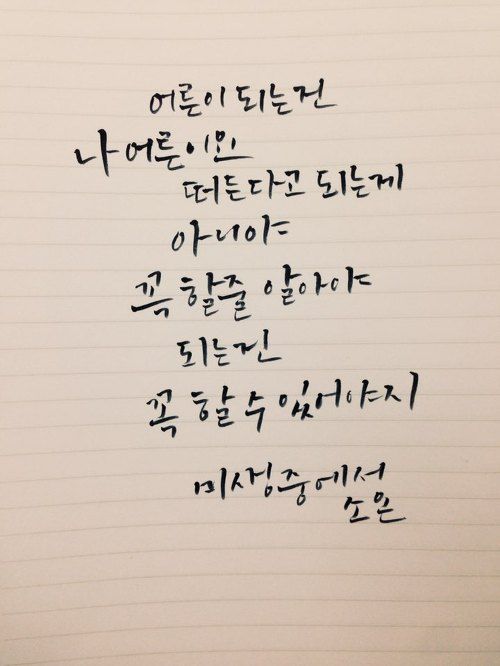 어른이 되는건
나 어른이오
떠든다고 되는게
아니야
꼭 할줄 알아야
되는건
꼭 할 수 있어야지
미생중에서
소은